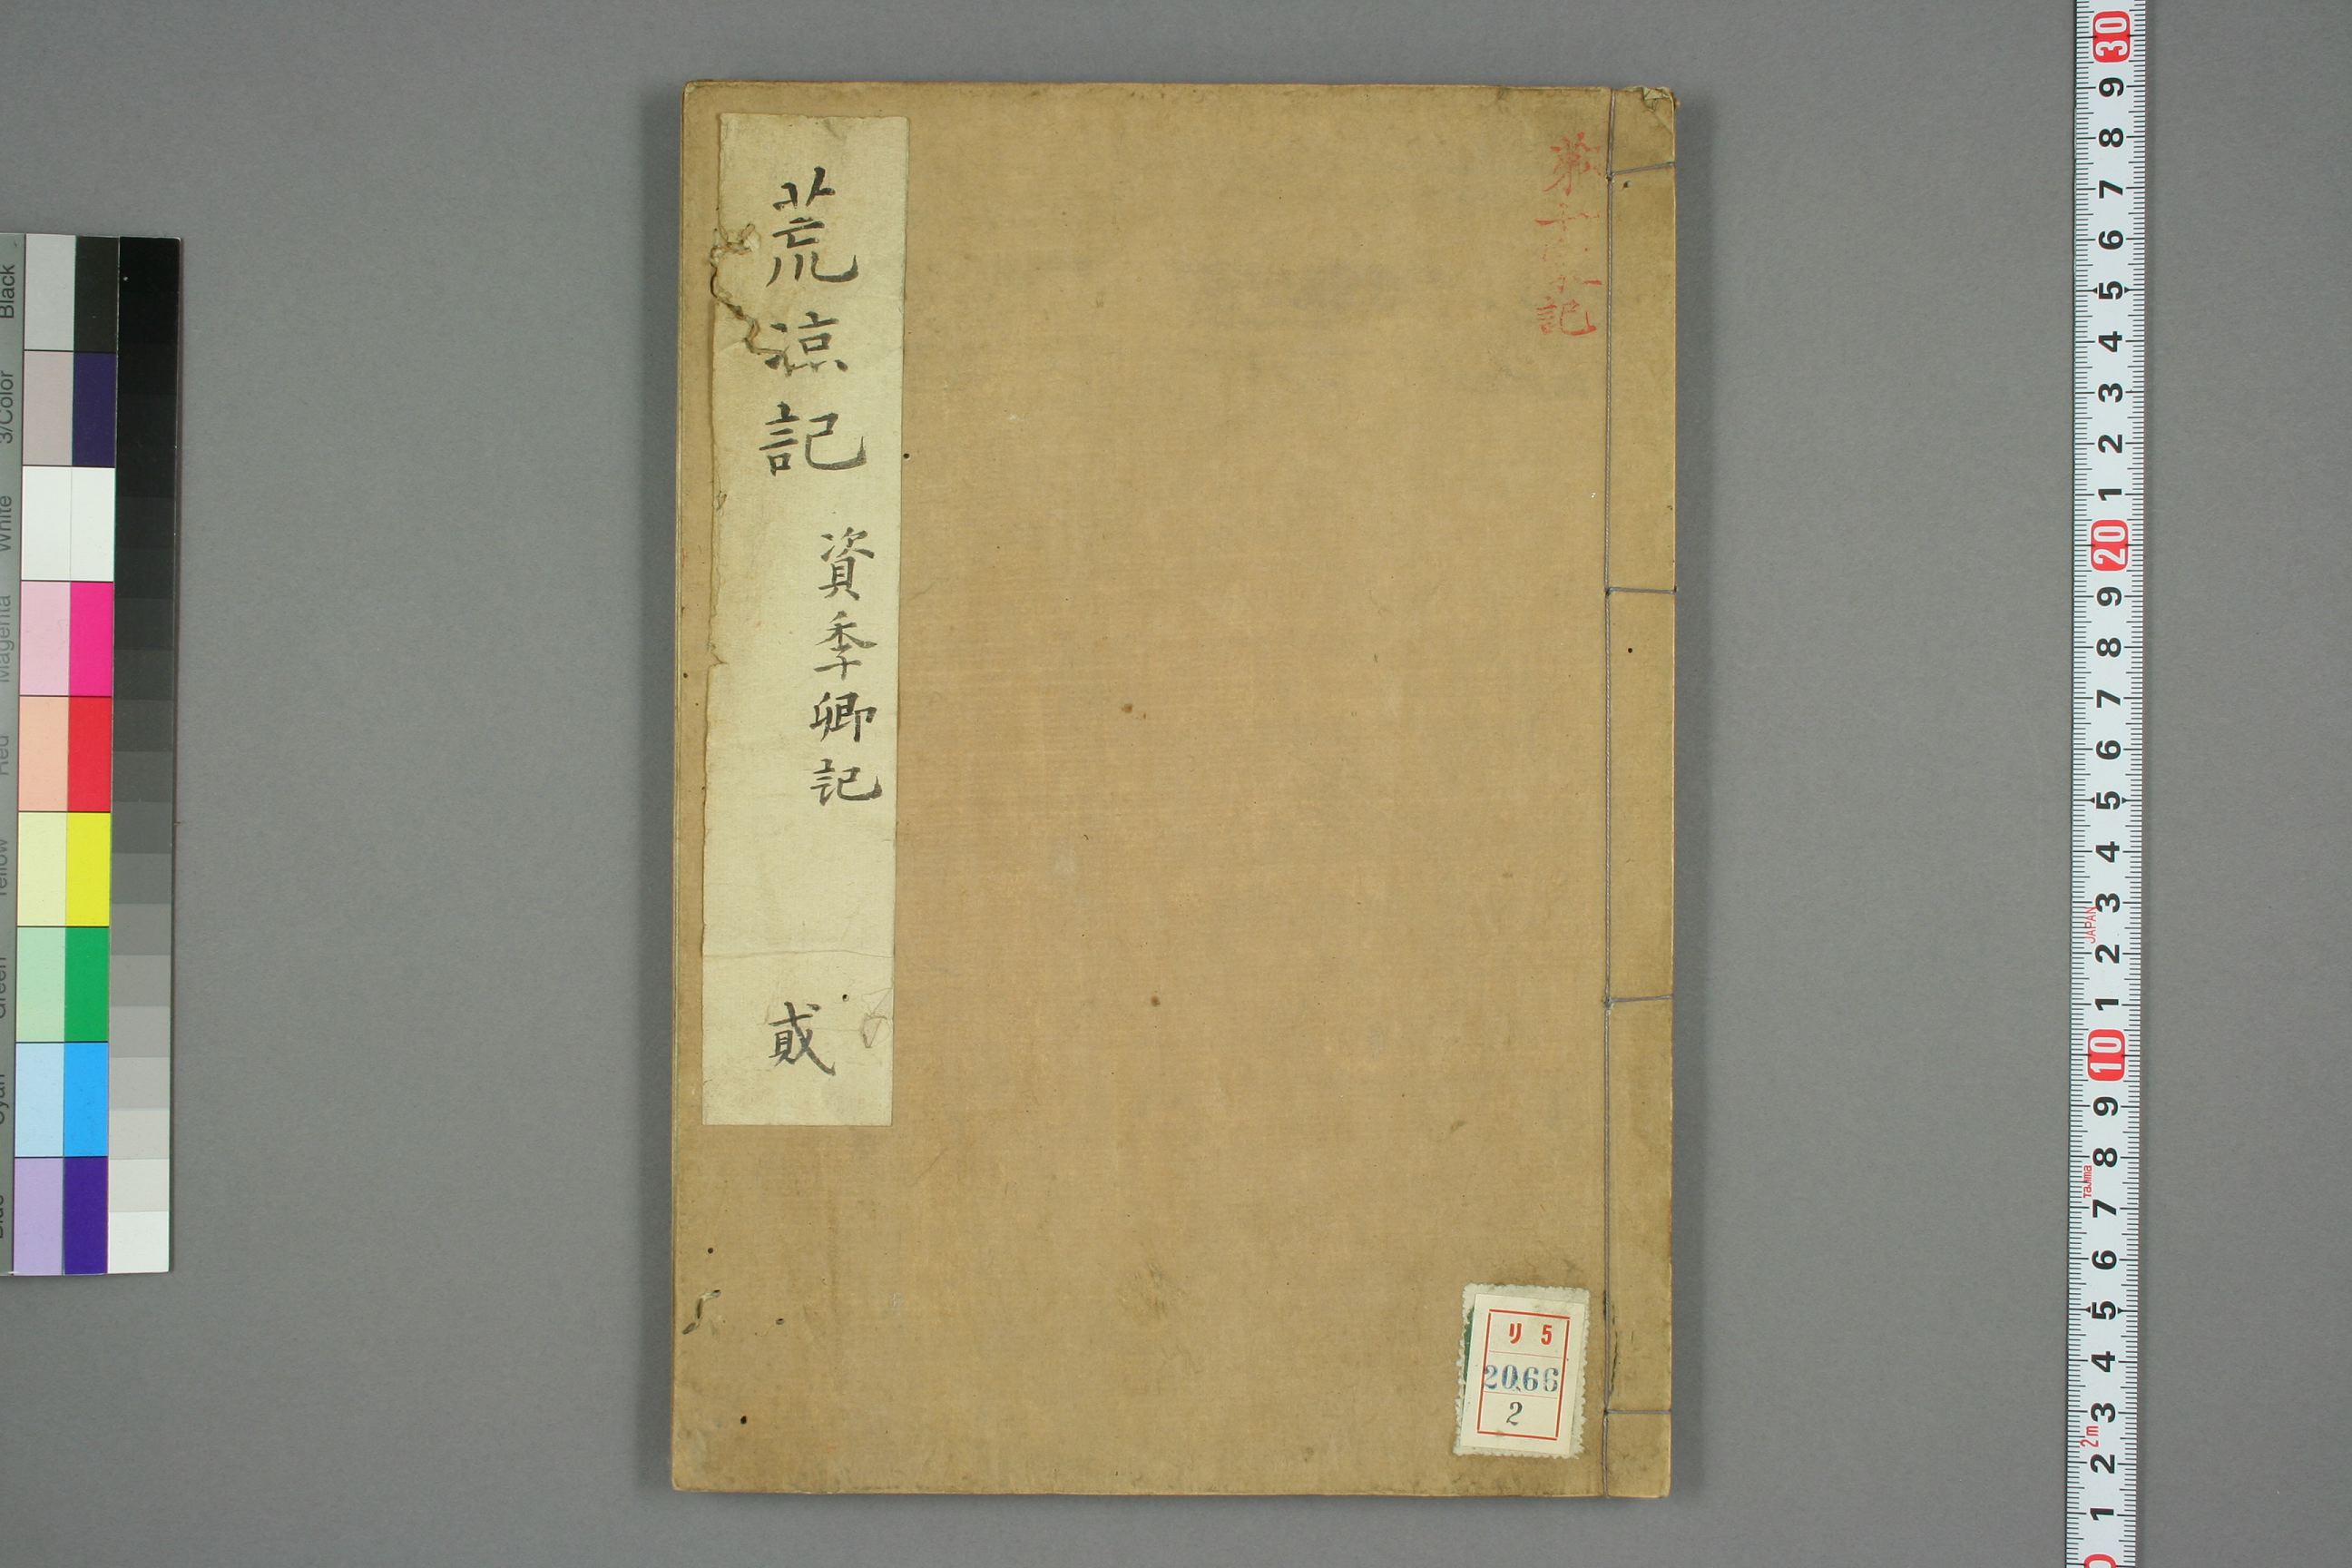 荒涼記
資季卿記
貳
記
リ 5
2066
2
30
9
8
7
6
5
4
3
2
1
20
9
8
7
6
5
4
3
JAPAN
2
1
10
9
8
Tajima
7
6
5
4
3
2m
2
1
Black
3/Color
White
Magenta
Red
Yellow
Green
Cyan
Blue